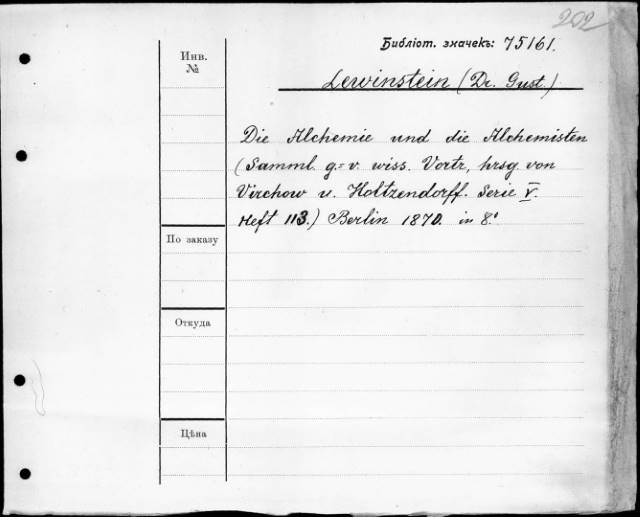 202
Библіот. значекъ: 75161.
Инв.
№
Lewinstein (Dr. Gust.)
Die Alchemie und die Alchemisten
(Samml. g.=v. wiss. Vortr, hrsg von
Virchow u. Holtzendorff. Serie V.
Heft 113.) Berlin 1870. in 8.°
По заказу
Откуда
Цѣна